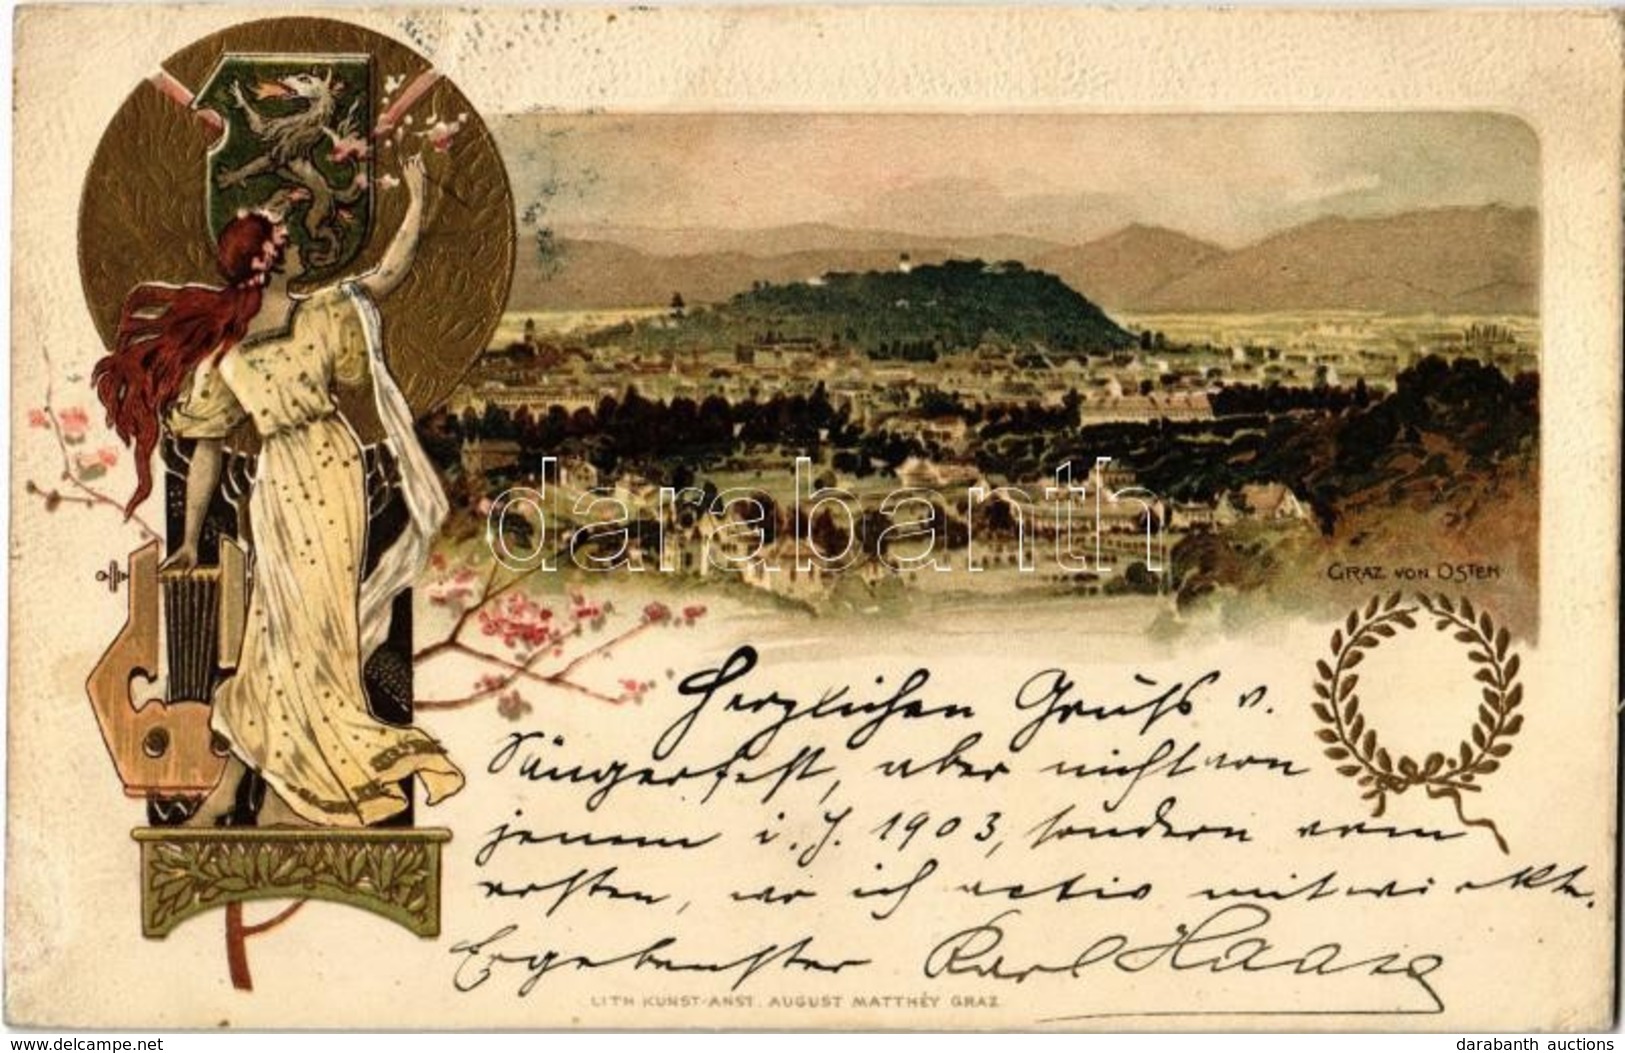 GRAZ VON OSTEN
Herzlichen Gruss v.
Sängerfest, aber nicht von
jenem i. J. 1903, sondern vom
ersten, wo ich activ mitwirkte.
Ergebenster Karl Haas
LITH. KUNST-ANST. AUGUST MATTHËY GRAZ
darabanth
delcampe.net
darabanth auctions